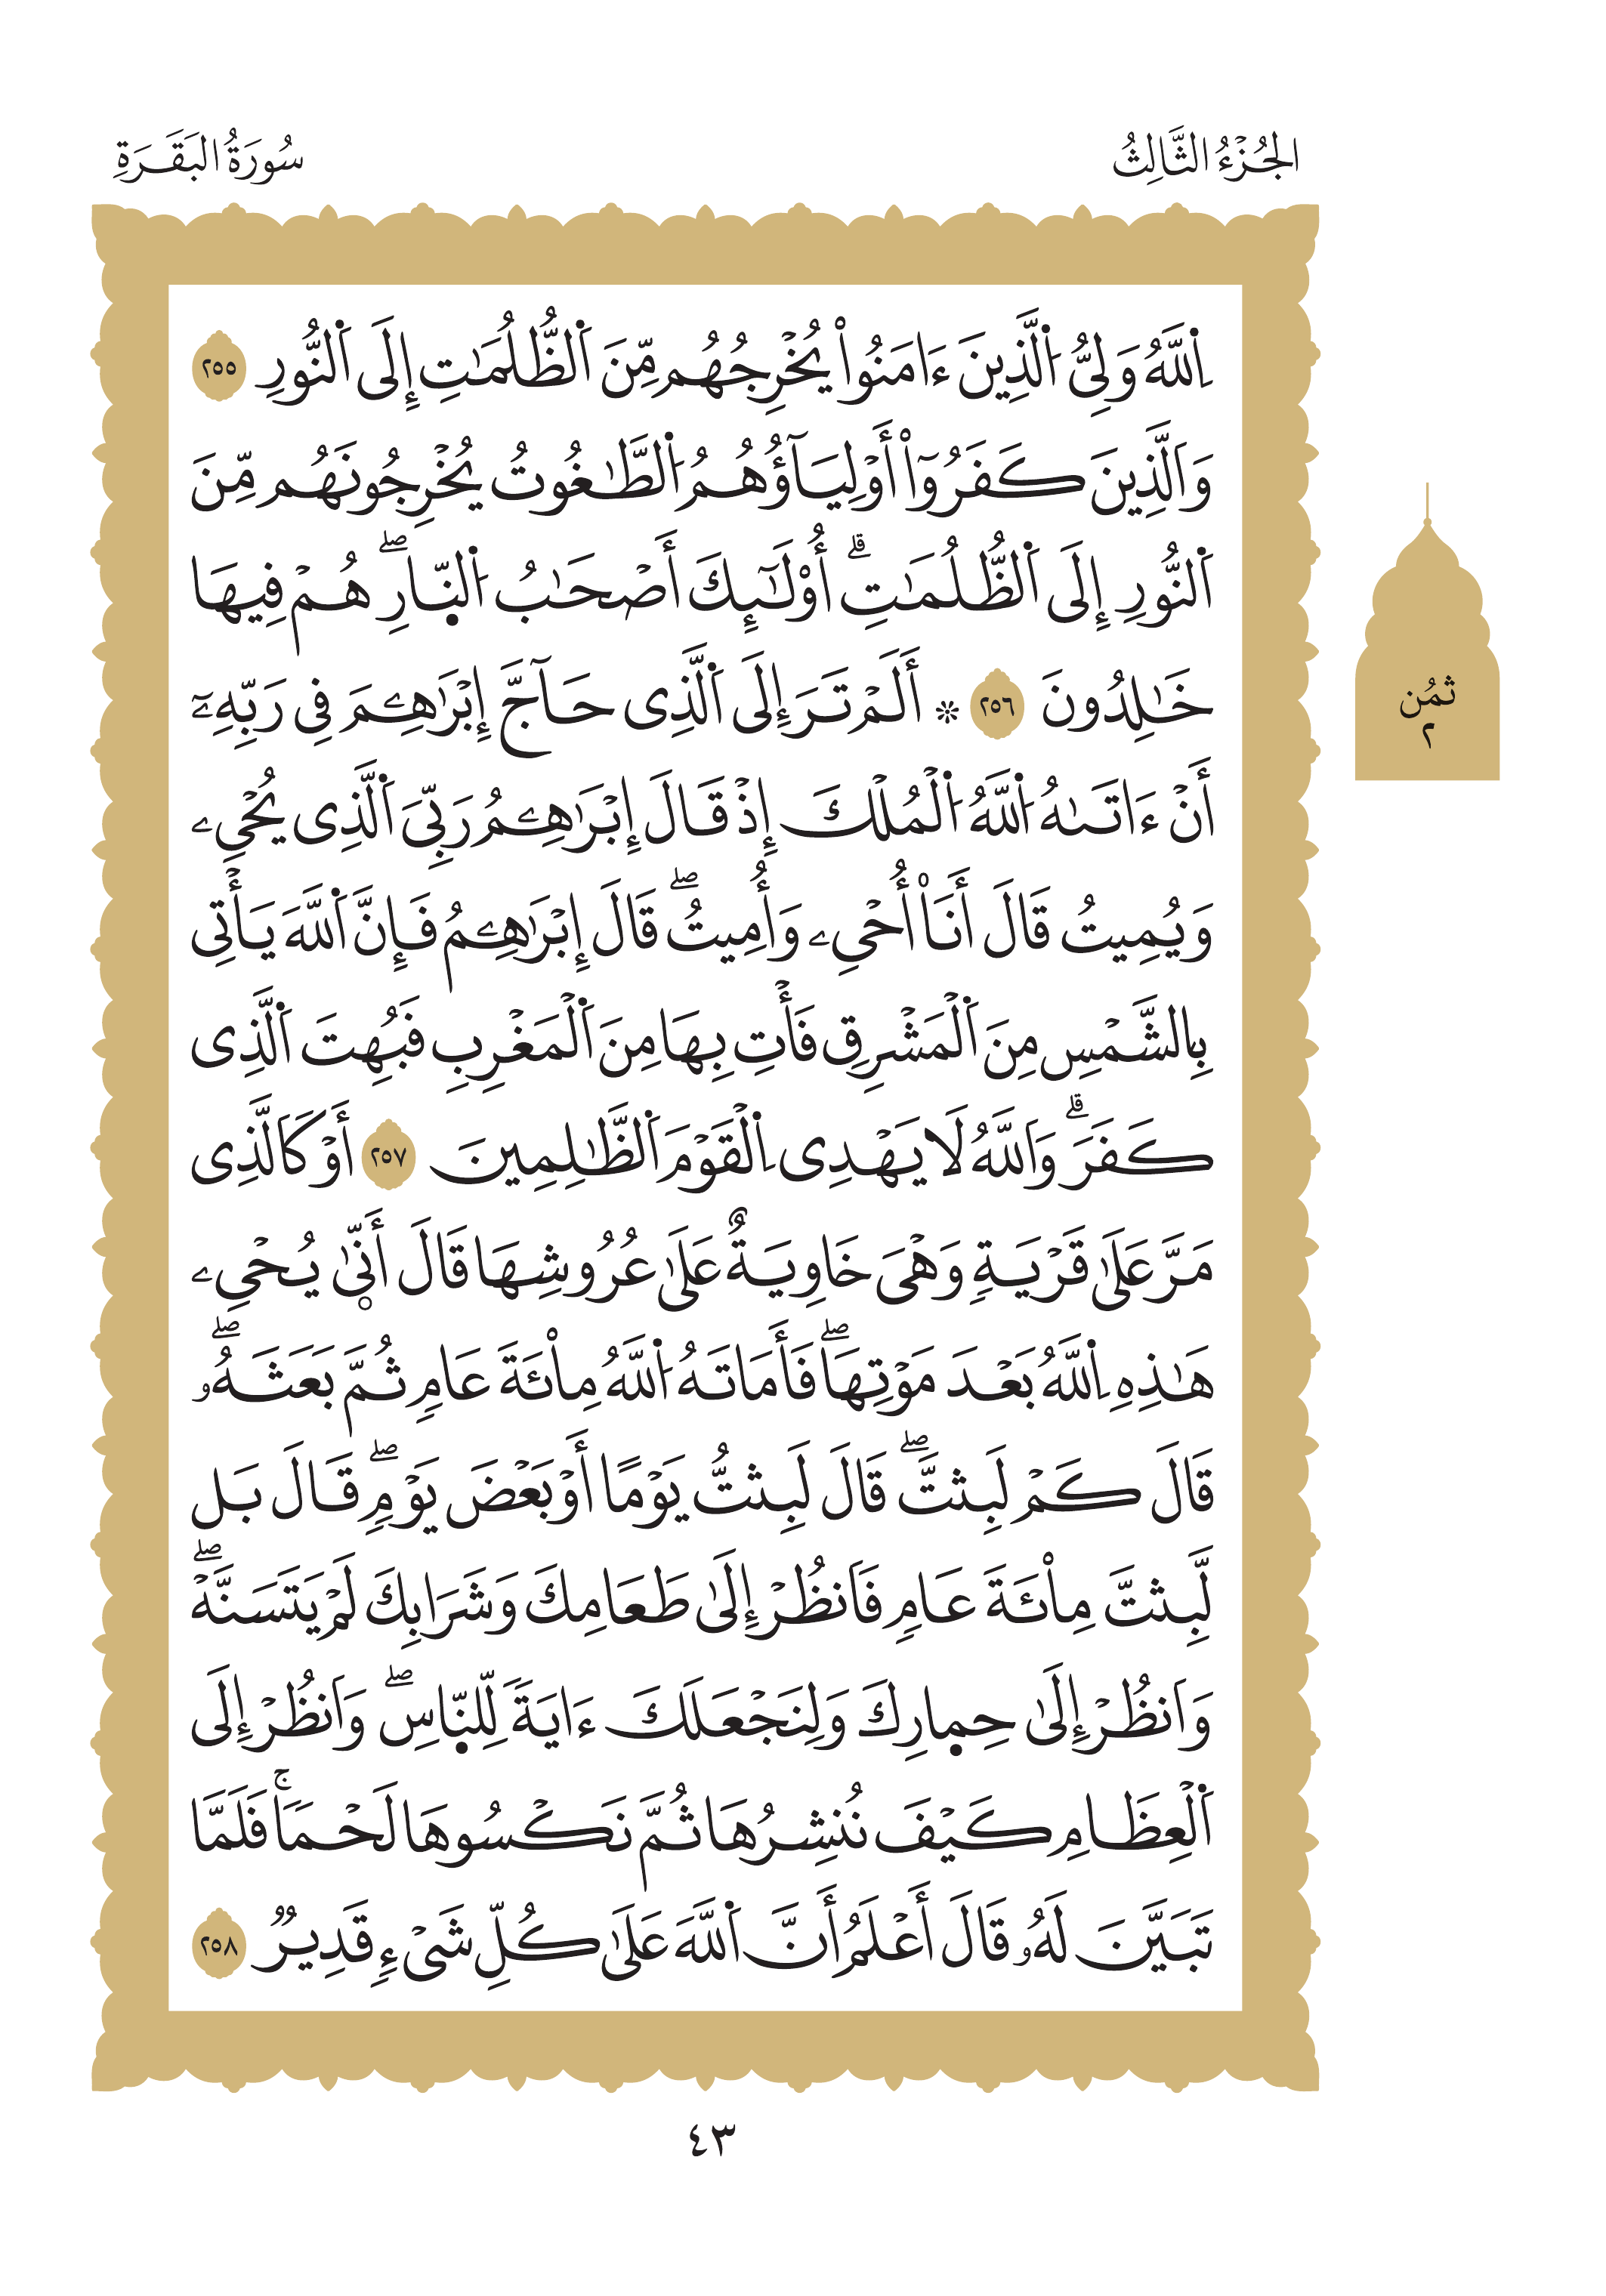 الجُزْءُ الثَّالِثُ
سُورَةُ البَقَرَةِ
اِ۬للَّهُ وَلِيُّ اُ۬لَّذِينَ ءَامَنُواْ يُخْرِجُهُم مِّنَ اَ۬لظُّلُمَٰتِ إِلَى اَ۬لنُّورِ ٢٥٥
وَالَّذِينَ كَفَرُوٓاْ أَوْلِيَآؤُهُمُ اُ۬لطَّٰغُوتُ يُخْرِجُونَهُم مِّنَ
اَ۬لنُّورِ إِلَى اَ۬لظُّلُمَٰتِۗ أُوْلَٰٓئِكَ أَصْحَٰبُ اُ۬لنّ۪ارِۖ هُمْ فِيهَا
خَٰلِدُونَ ٢٥٦ ۞ أَلَمْ تَرَ إِلَى اَ۬لَّذِى حَآجَّ إِبْرَٰهِۦمَ فِى رَبِّهِۦٓ
أَنْ ءَاتَىٰهُ اُ۬للَّهُ اُ۬لْمُلْكَ إِذْ قَالَ إِبْرَٰهِۦمُ رَبِّيَ اَ۬لَّذِى يُحْيِۦ
وَيُمِيتُ قَالَ أَنَا۠ أُحْيِۦ وَأُمِيتُۖ قَالَ إِبْرَٰهِۦمُ فَإِنَّ اَ۬للَّهَ يَأْتِى
بِالشَّمْسِ مِنَ اَ۬لْمَشْرِقِ فَأْتِ بِهَا مِنَ اَ۬لْمَغْرِبِ فَبُهِتَ اَ۬لَّذِى
كَفَرَۗ وَاللَّهُ لَا يَهْدِى اِ۬لْقَوْمَ اَ۬لظَّٰلِمِينَ ٢٥٧ أَوْ كَالَّذِى
مَرَّ عَلَىٰ قَرْيَةٍ وَهْىَ خَاوِيَةٌ عَلَىٰ عُرُوشِهَا قَالَ أَنّ۪ىٰ يُحْيِۦ
هَٰذِهِ اِ۬للَّهُ بَعْدَ مَوْتِهَاۖ فَأَمَاتَهُ اُ۬للَّهُ مِاْئَةَ عَامٍ ثُمَّ بَعَثَهُۥۖ
قَالَ كَمْ لَبِثتَّۖ قَالَ لَبِثتُّ يَوْمًا أَوْ بَعْضَ يَوْمٍۖ قَالَ بَل
لَّبِثتَّ مِاْئَةَ عَامٍ فَانظُرْ إِلَىٰ طَعَامِكَ وَشَرَابِكَ لَمْ يَتَسَنَّهْۖ
وَانظُرْ إِلَىٰ حِم۪ارِكَ وَلِنَجْعَلَكَ ءَايَةً لِّلنّ۪اسِۖ وَانظُرْ إِلَى
اَ۬لْعِظَامِ كَيْفَ نُنشِرُهَا ثُمَّ نَكْسُوهَا لَحْمًاۚ فَلَمَّا
تَبَيَّنَ لَهُۥ قَالَ أَعْلَمُ أَنَّ اَ۬للَّهَ عَلَىٰ كُلِّ شَىْءٍ قَدِيرٌ ٢٥٨
ثمُن
٢
٤٣